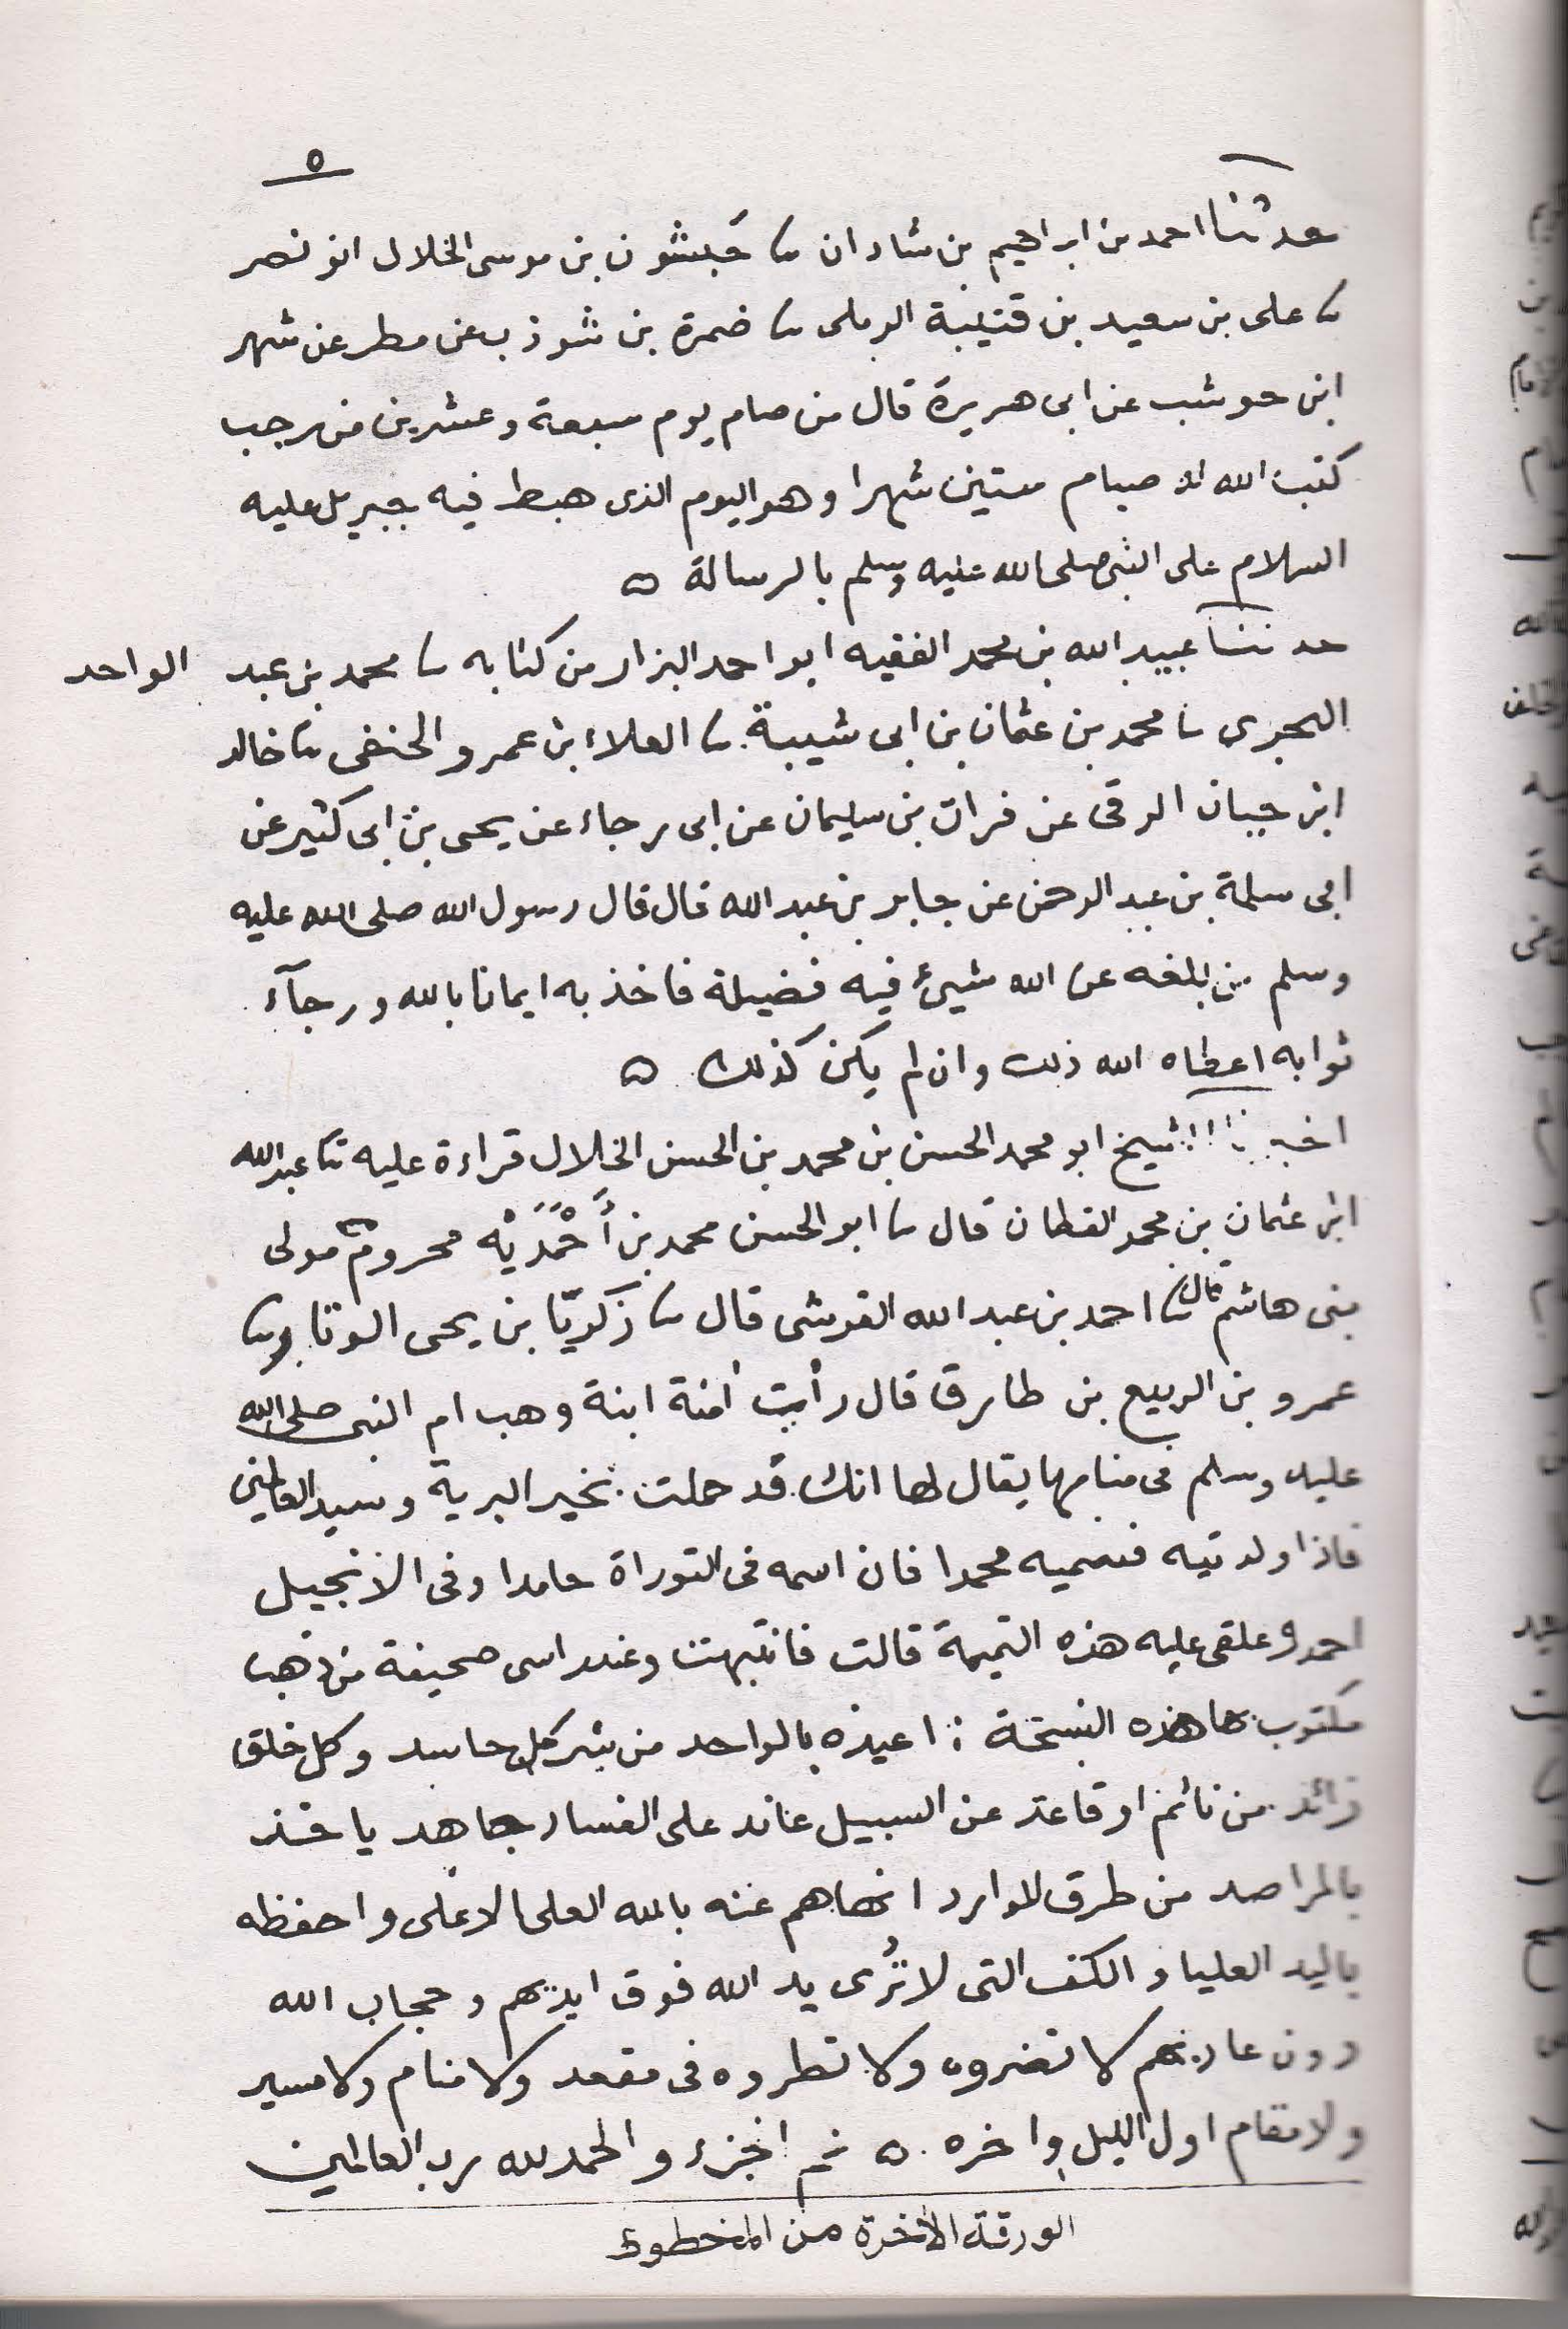 ٥
حدثنا احمد بن ابراهيم بن شاذان ثنا حَبشون بن موسى الخلال ابو نصر
ثنا على بن سعيد بن قتيبة الرملى ثنا ضمرة بن شوذب عن مطر عن شهر
ابن حوشب عن ابى هريرة قال من صام يوم سبعة وعشرين من رجب
كتب الله له صيام ستين شهرا وهو اليوم الذى هبط فيه جبريل عليه
السلام على النبى صلى الله عليه وسلم بالرسالة ٥
حدثنا عبيد الله بن محمد الفقيه ابو احمد البزار من كتابه ثنا محمد بن عبد الواحد
ثنا محمد بن عثمان بن ابى شيبة ثنا العلاء بن عمرو الحنفى ثنا خالد
ابن حبان الرقى عن فرات بن سليمان عن ابى رجاء عن يحى بن ابى كثير عن
ابى سلمة بن عبد الرحمن عن جابر بن عبد الله قال قال رسول الله صلى الله عليه
وسلم من بلغه عن الله شيئ فيه فضيلة فاخذ به ايمانا بالله ورجآء
ثوابه اعطاه الله ذلك وان لم يكن كذلك ٥
اخبرنا الشيخ ابو محمد الحسن بن محمد بن الحسن الخلال قراءة عليه ثنا عبد الله
ابن عثمان بن محمد القطان قال ثنا ابو الحسن محمد بن أَحْمَدَيْه محروم مولى
بنى هاشم قال ثنا احمد بن عبد الله القرشى قال ثنا زكريّا بن يحى الوقار ثنا
عمرو بن الربيع بن طارق قال رأيت امنة ابنة وهب ام النبى صلى الله
عليه وسلم فى منامها يقال لها انك قد حملت بخير البرية وسيد العالمين
فاذا ولدتيه فسميه محمدا فان اسمه فى التوراة حامدا وفى الانجيل
احمد وعلقى عليه هذه التميمة قالت فانتبهت وعند راسى صحيفة من ذهب
مكتوب بها هذه النسخة : اعيذه بالواحد من شر كل حاسد وكل خلق
زائد من نائم او قاعد عن السبيل عاند على الفساد جاهد ياخذ
بالمراصد من طرق الموارد انهاهم عنه بالله العلى الاعلى واحفظه
باليد العليا والكف التى لا تُرى يد الله فوق ايديهم وحجاب الله
دون عاديهم لا تضروه ولا تطروه فى مقعد ولا منام ولا مسير
ولا مقام اول الليل واخره ٥ تم الجزء والحمد لله رب العالمين
الورقة الأخرة من المخطوط